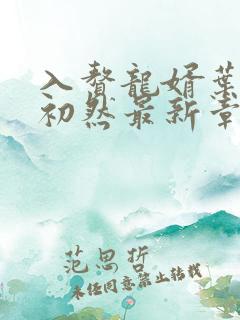 入贅龍婿葉
初然最新章
范思哲
未经同意禁止转载